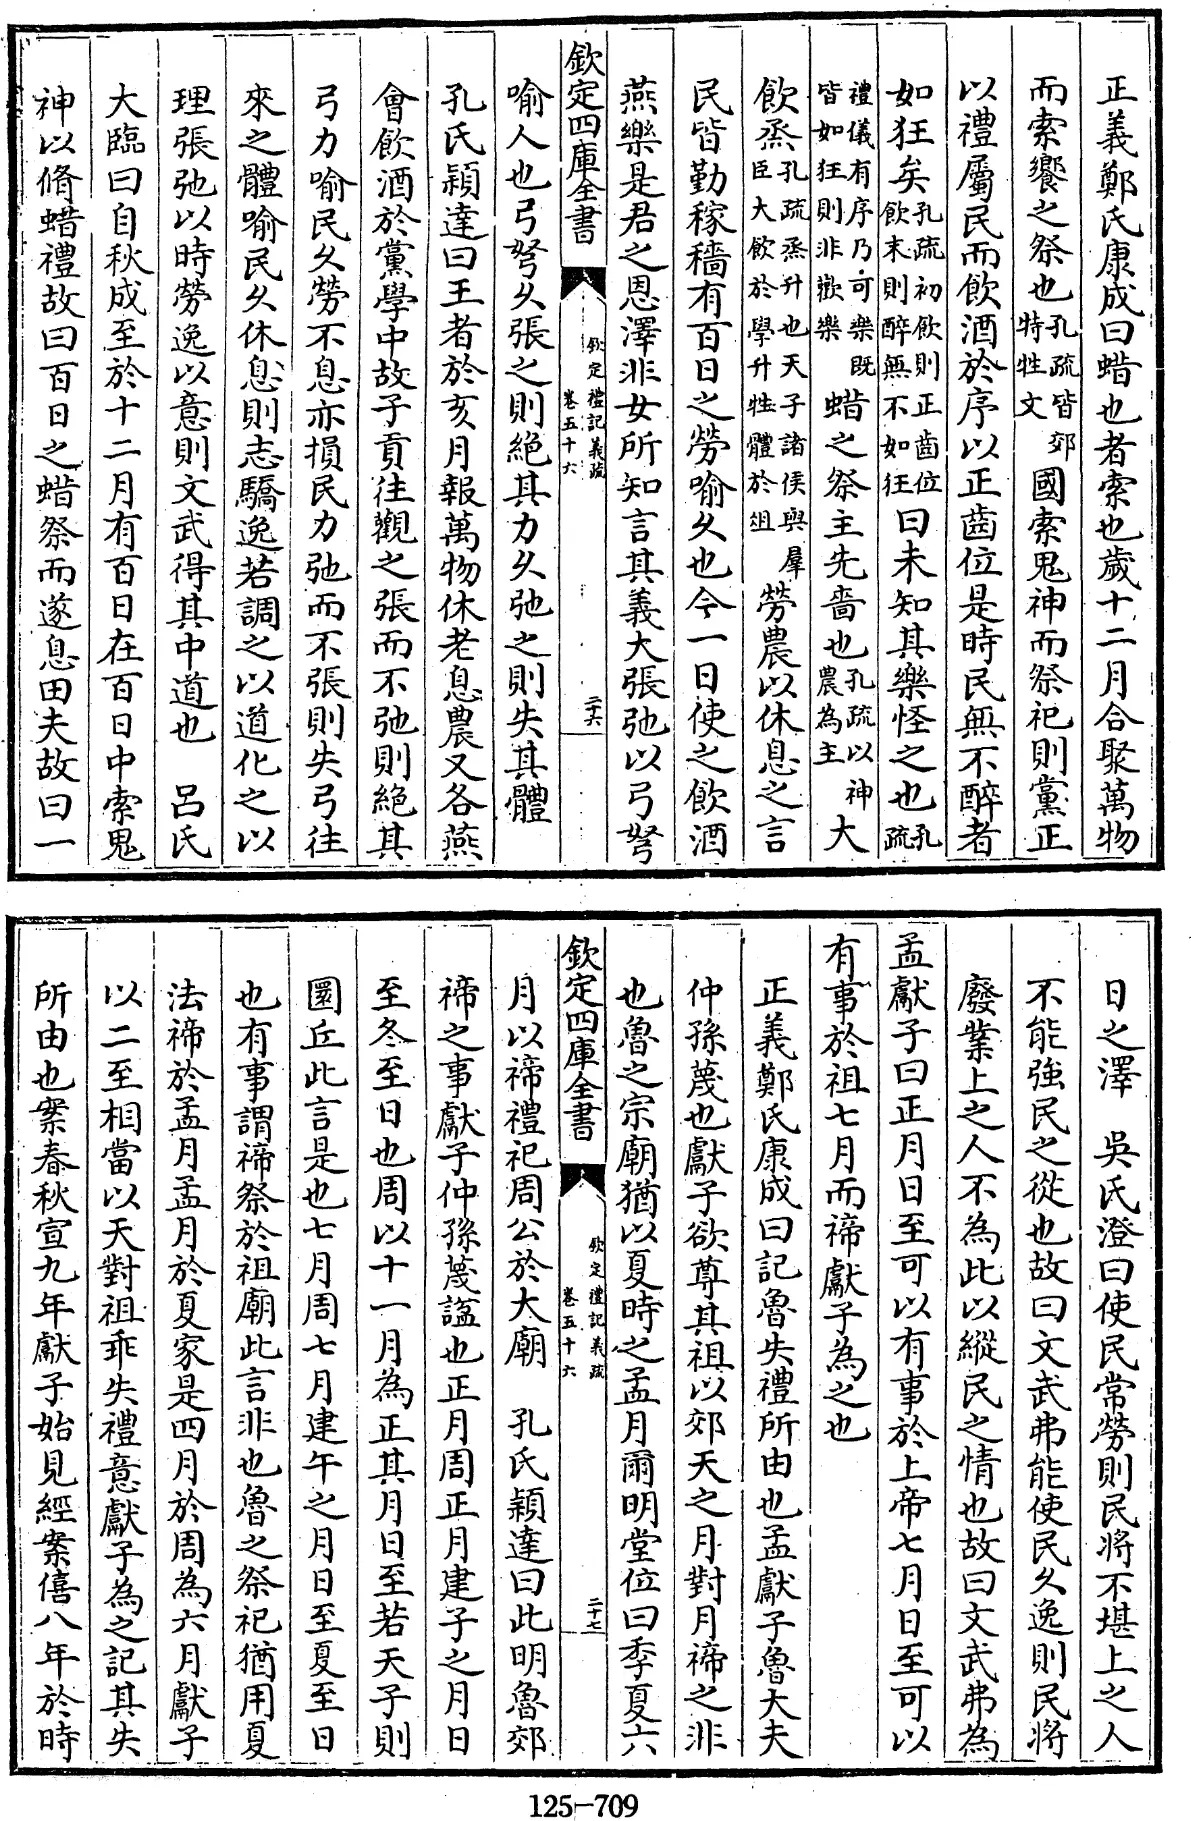 正義鄭氏康成曰蜡也者索也歲十二月合聚萬物
而索饗之祭也孔疏皆郊特牲文國索鬼神而祭祀則黨正
以禮屬民而飲酒於序以正齒位是時民無不醉者
如狂矣孔疏初飲則正齒位飲末則醉無不如狂曰未知其樂怪之也孔疏
禮儀有序乃可樂既皆如狂則非歡樂蜡之祭主先嗇也孔疏以神農為主大
飲烝孔疏烝升也天子諸侯與羣臣大飲於學升牲體於俎勞農以休息之言
民皆勤稼穡有百日之勞喻久也今一日使之飲酒
燕樂是君之恩澤非女所知言其義大張弛以弓弩
欽定四庫全書
欽定禮記義疏
卷五十六
二十六
喻人也弓弩久張之則絕其力久弛之則失其體
孔氏穎達曰王者於亥月報萬物休老息農又各燕
會飲酒於黨學中故子貢往觀之張而不弛則絕其
弓力喻民久勞不息亦損民力弛而不張則失弓往
來之體喻民久休息則志驕逸若調之以道化之以
理張弛以時勞逸以意則文武得其中道也 呂氏
大臨曰自秋成至於十二月有百日在百日中索鬼
神以脩蜡禮故曰百日之蜡祭而遂息田夫故曰一
日之澤 吳氏澄曰使民常勞則民將不堪上之人
不能強民之從也故曰文武弗能使民久逸則民將
廢業上之人不為此以縱民之情也故曰文武弗為
孟獻子曰正月日至可以有事於上帝七月日至可以
有事於祖七月而禘獻子為之也
正義鄭氏康成曰記魯失禮所由也孟獻子魯大夫
仲孫蔑也獻子欲尊其祖以郊天之月對月禘之非
也魯之宗廟猶以夏時之孟月爾明堂位曰季夏六
欽定四庫全書
欽定禮記義疏
卷五十六
二十七
月以禘禮祀周公於大廟 孔氏穎達曰此明魯郊
禘之事獻子仲孫蔑諡也正月周正月建子之月日
至冬至日也周以十一月為正其月日至若天子則
圜丘此言是也七月周七月建午之月日至夏至日
也有事謂禘祭於祖廟此言非也魯之祭祀猶用夏
法禘於孟月孟月於夏家是四月於周為六月獻子
以二至相當以天對祖乖失禮意獻子為之記其失
所由也案春秋宣九年獻子始見經案僖八年於時
125-709